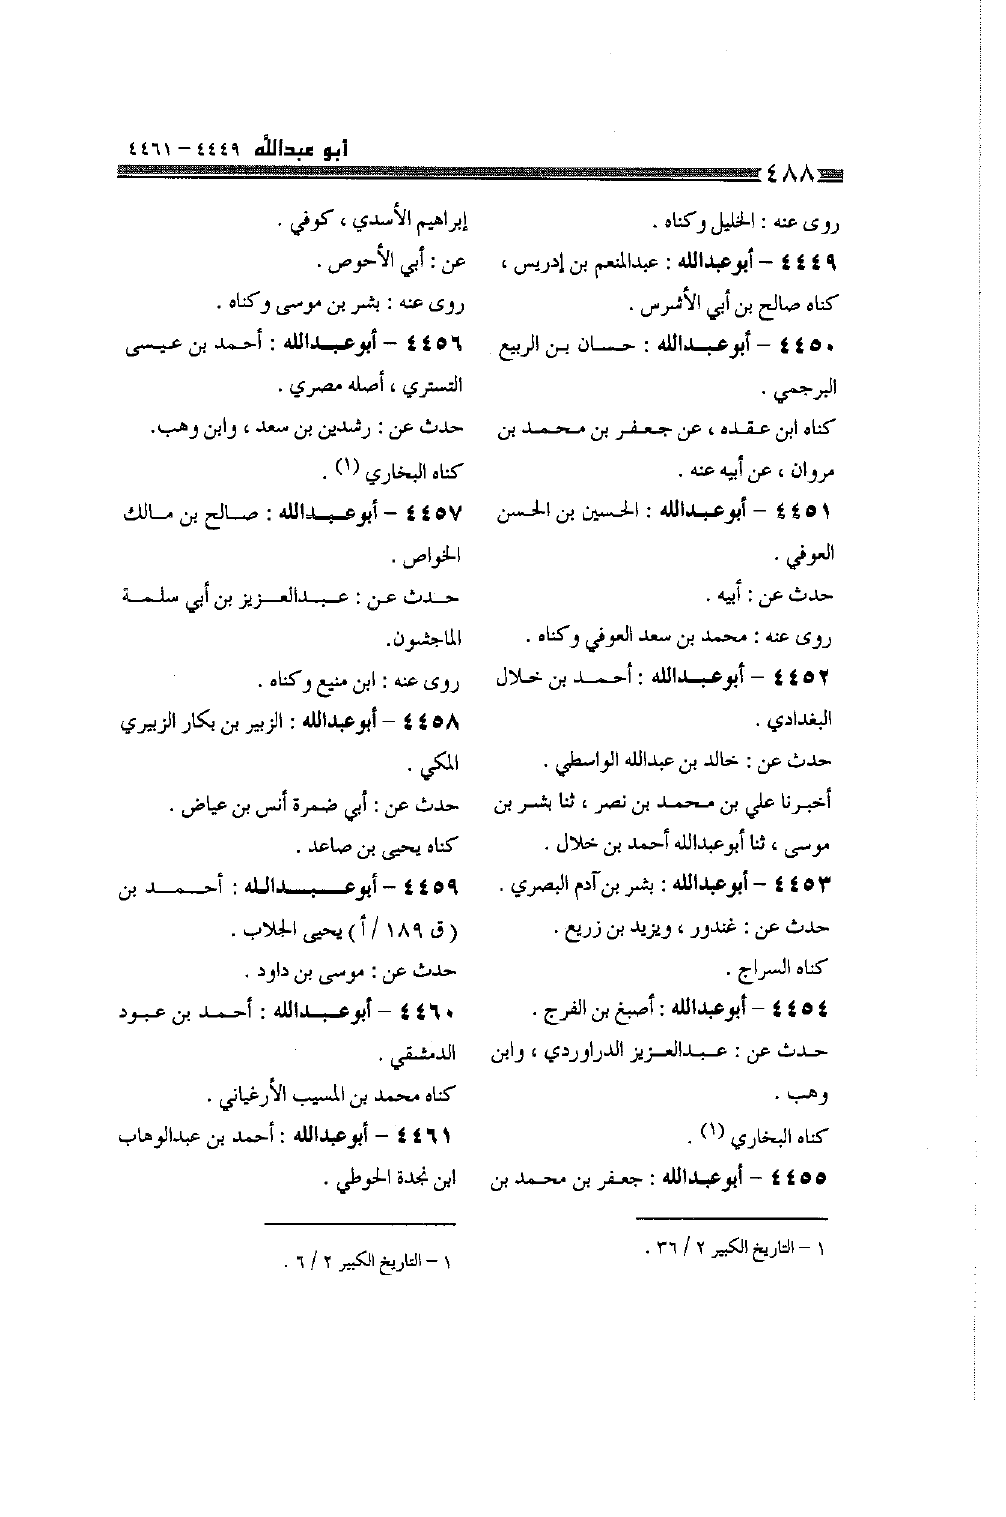 أبو عبدالله ٤٤٤٩ – ٤٤٦١
٤٨٨
روى عنه : الخليل وكناه .
٤٤٤٩ – أبو عبدالله : عبدالمنعم بن إدريس ،
كناه صالح بن أبي الأشرس .
٤٤٥٠ – أبو عبدالله : حسان بن الربيع
البرجمي .
كناه ابن عقده ، عن جعفر بن محمد بن
مروان ، عن أبيه عنه .
٤٤٥١ – أبو عبدالله : الحسين بن الحسن
العوفي .
حدث عن : أبيه .
روى عنه : محمد بن سعد العوفي وكناه .
٤٤٥٢ – أبو عبدالله : أحمد بن خلال
البغدادي .
حدث عن : خالد بن عبدالله الواسطي .
أخبرنا علي بن محمد بن نصر ، ثنا بشر بن
موسى ، ثنا أبو عبدالله أحمد بن خلال .
٤٤٥٣ – أبو عبدالله : بشر بن آدم البصري .
حدث عن : غندور ، ويزيد بن زريع .
كناه السراج .
٤٤٥٤ – أبو عبدالله : أصبغ بن الفرج .
حدث عن : عبدالعزيز الدراوردي ، وابن
وهب .
كناه البخاري (١) .
٤٤٥٥ – أبو عبدالله : جعفر بن محمد بن
١ – التاريخ الكبير ٢ / ٣٦ .
إبراهيم الأسدي ، كوفي .
عن : أبي الأحوص .
روى عنه : بشر بن موسى وكناه .
٤٤٥٦ – أبو عبدالله : أحمد بن عيسى
التستري ، أصله مصري .
حدث عن : رشدين بن سعد ، وابن وهب.
كناه البخاري (١) .
٤٤٥٧ – أبو عبدالله : صالح بن مالك
الخواص .
حدث عن : عبدالعزيز بن أبي سلمة
الماجشون.
روى عنه : ابن منيع وكناه .
٤٤٥٨ – أبو عبدالله : الزبير بن بكار الزبيري
المكي .
حدث عن : أبي ضمرة أنس بن عياض .
كناه يحيى بن صاعد .
٤٤٥٩ – أبو عبدالله : أحمد بن
( ق ١٨٩ / أ ) يحيى الجلاب .
حدث عن : موسى بن داود .
٤٤٦٠ – أبو عبدالله : أحمد بن عبود
الدمشقي .
كناه محمد بن المسيب الأرغياني .
٤٤٦١ – أبو عبدالله : أحمد بن عبدالوهاب
ابن نجدة الحوطي .
١ – التاريخ الكبير ٢ / ٦ .